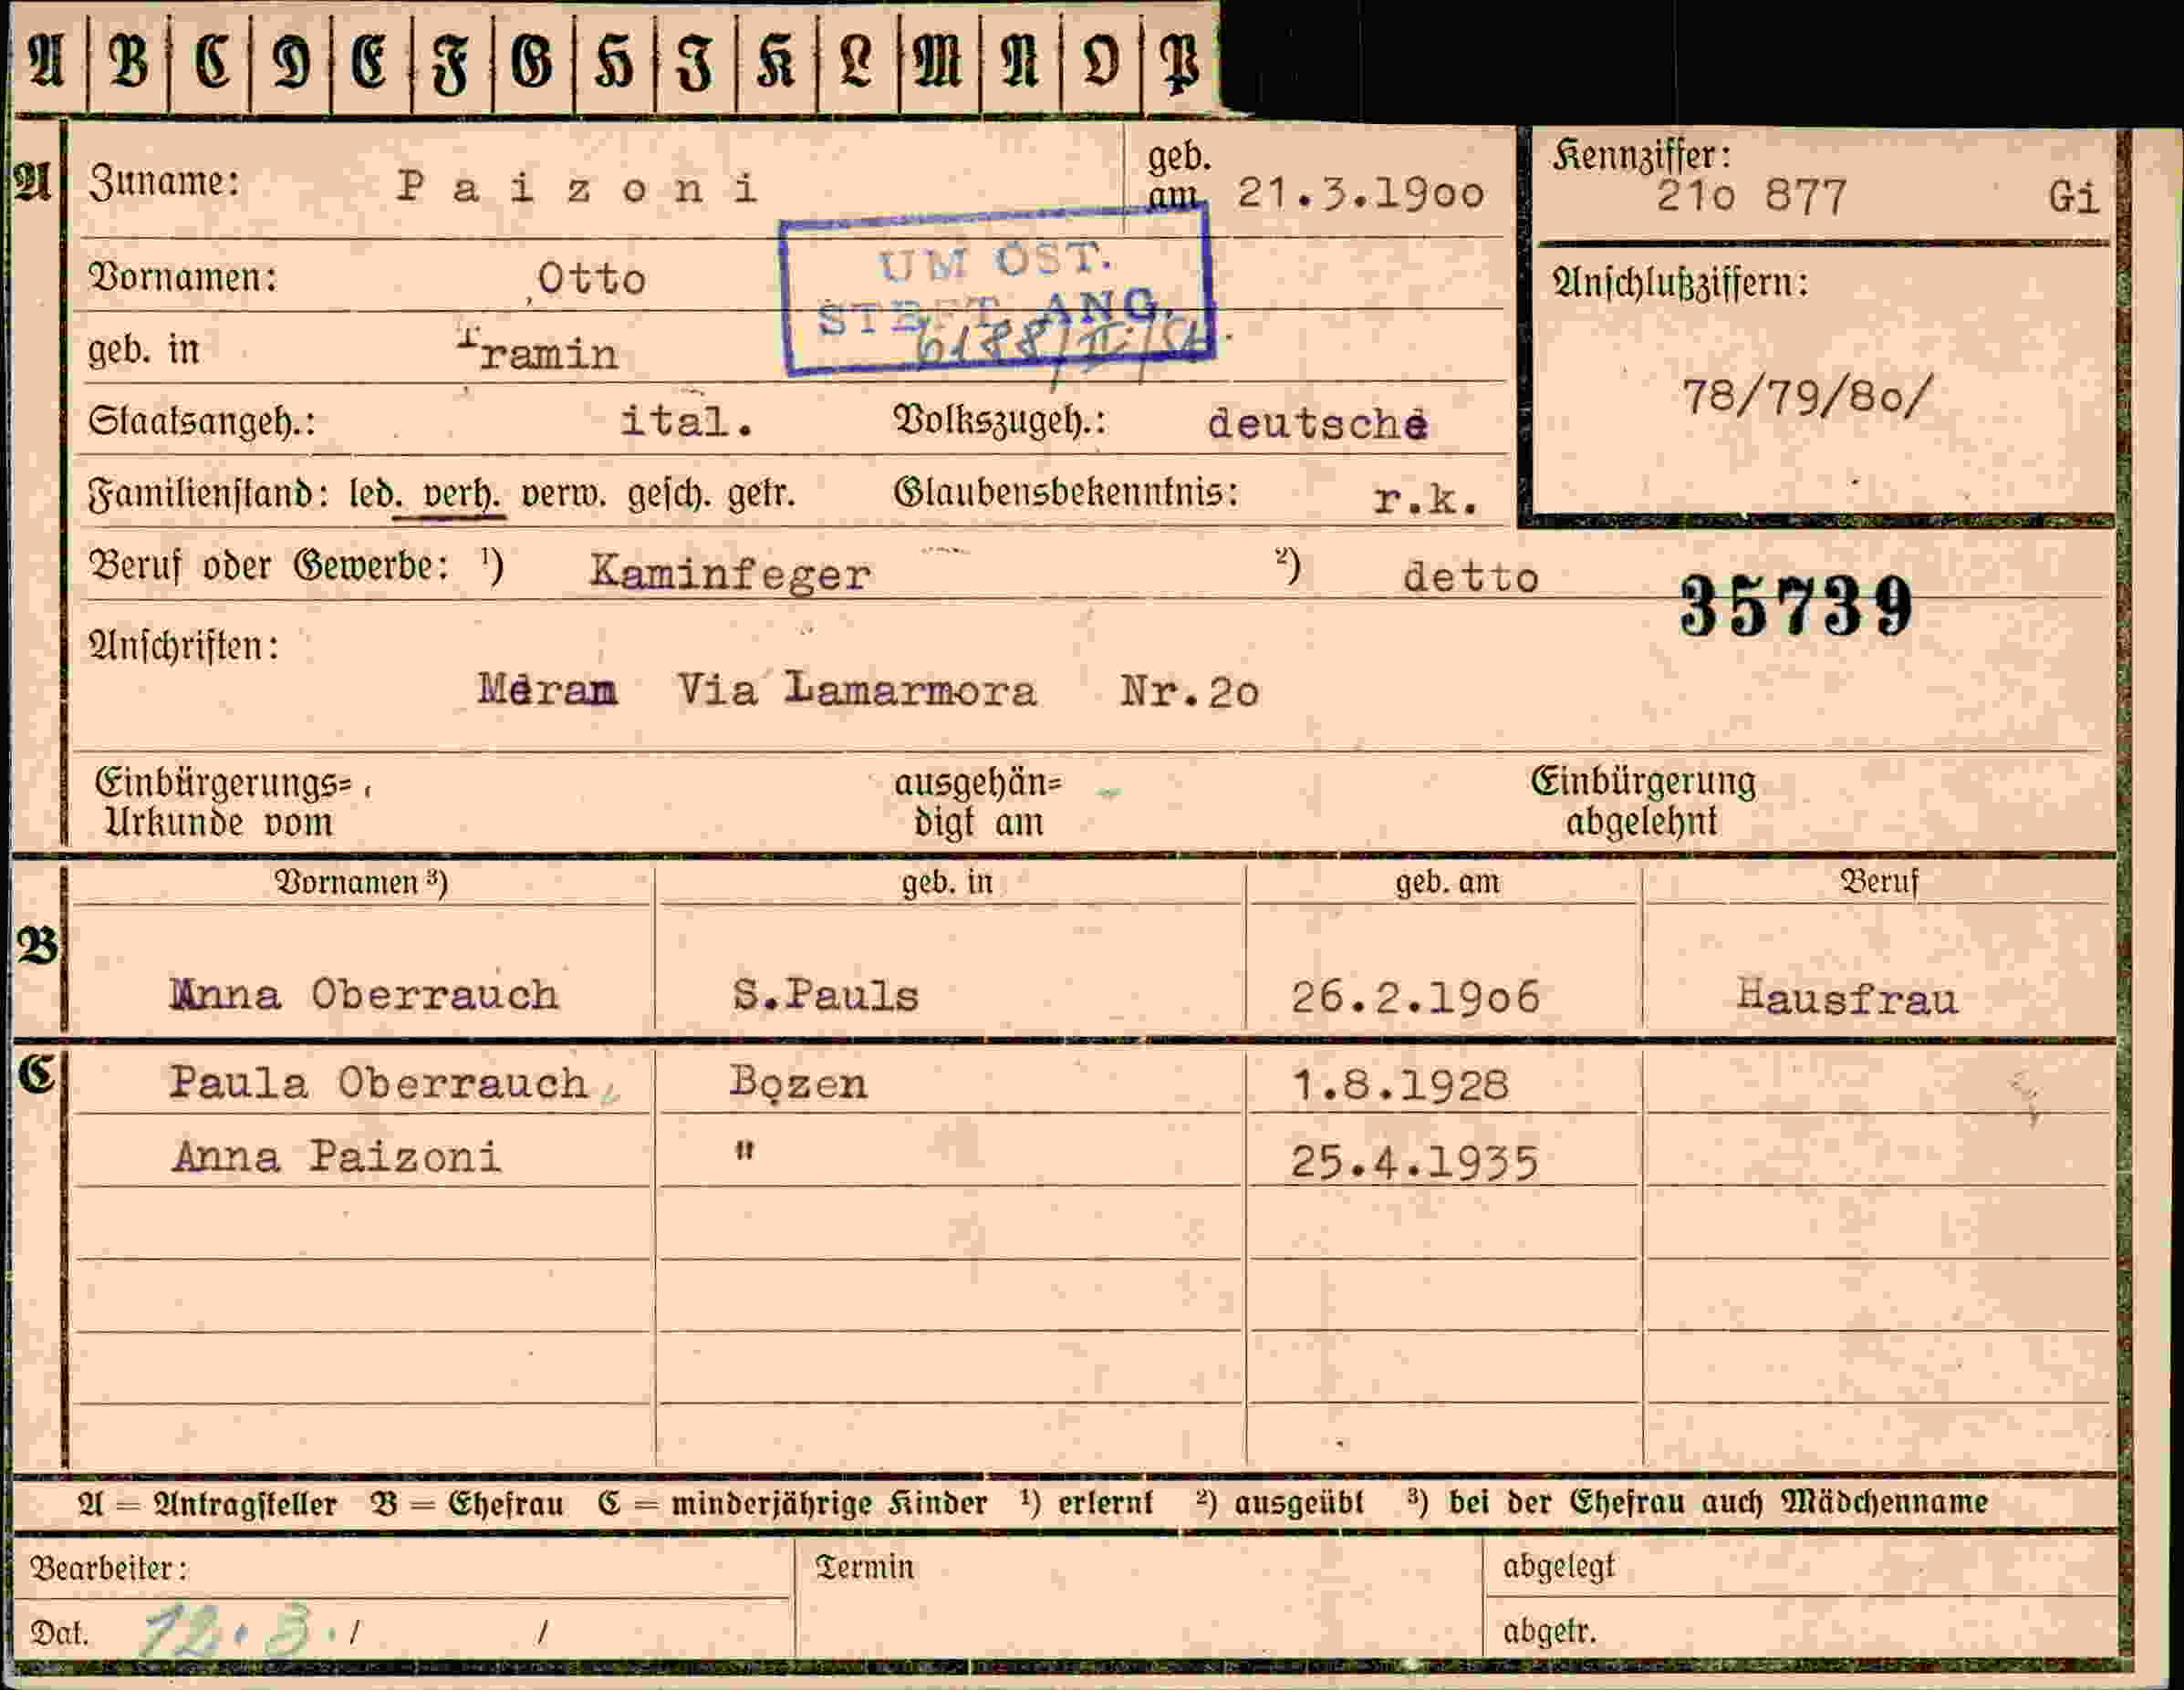 A B C D E F G H I K L M N O P
A
Zuname: Paizoni geb. am 21.3.19oo
Kennziffer: 21o 877 Gi
Vornamen: Otto
UM OST.
ANG.
geb. in Tramin
Anschlußziffern:
78/79/8o/
Staatsangeh.: ital. Volkszugeh.: deutsche
Familienstand: led. verh. verw. gesch. getr. Glaubensbekenntnis: r.k.
Beruf oder Gewerbe: ¹) Kaminfeger ²) detto
35739
Anschriften:
Meran Via Lamarmora Nr.2o
Einbürgerungs= ausgehän= Einbürgerung
Urkunde vom digt am abgelehnt
Vornamen ³) geb. in geb. am Beruf
B
Anna Oberrauch S.Pauls 26.2.19o6 Hausfrau
C
Paula Oberrauch Bozen 1.8.1928
Anna Paizoni " 25.4.1935
A = Antragsteller B = Ehefrau C = minderjährige Kinder ¹) erlernt ²) ausgeübt ³) bei der Ehefrau auch Mädchenname
Bearbeiter: Termin abgelegt
Dat. 12.3./ / abgetr.